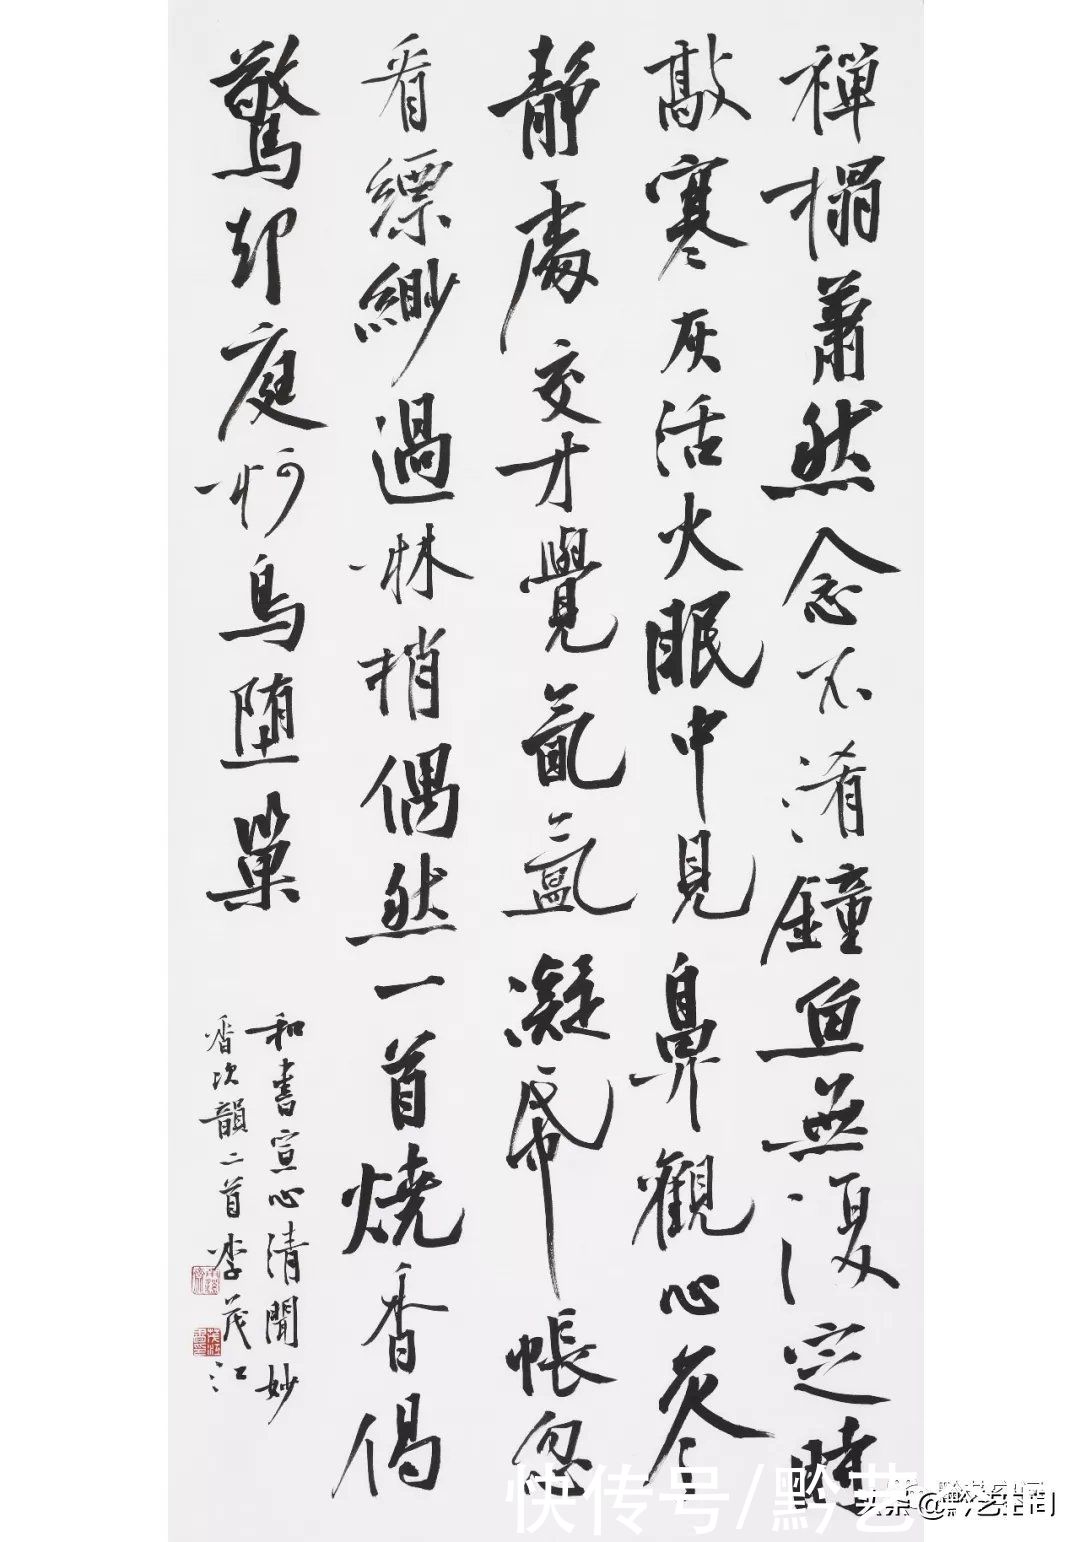 禪榻蕭然念不淆鐘魚無復定時
敲寒灰活火眠中見鼻觀心
靜處交才覺氤氳凝帋帳忽
看縹緲過林梢偶然一首燒香偈
驚却庭柯鳥堕巢
和書宣心清聞妙
香次韻二首李茂江
快传号/黔艺
头条@黔艺空间